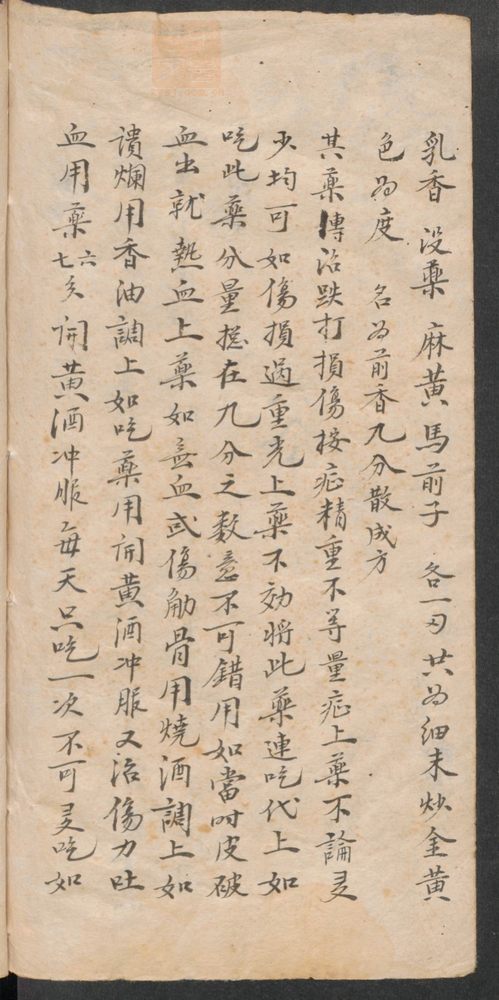 乳香 没藥 麻黄 馬前子 各一刃 共為細末炒金黄
色為度 名為前香九分散成方
其藥傳治跌打損傷按症精重不等量症上藥不論多
少均可如傷損過重光上藥不効將此藥連吃代上如
吃此藥分量搃在九分之数意不可錯用如當时皮破
血出就熱血上藥如無血或傷觔骨用燒酒調上如
潰爛用香油調上如吃藥用開黄酒冲服又治傷力吐
血用藥六七分開黄酒冲服每天只吃一次不可多吃如